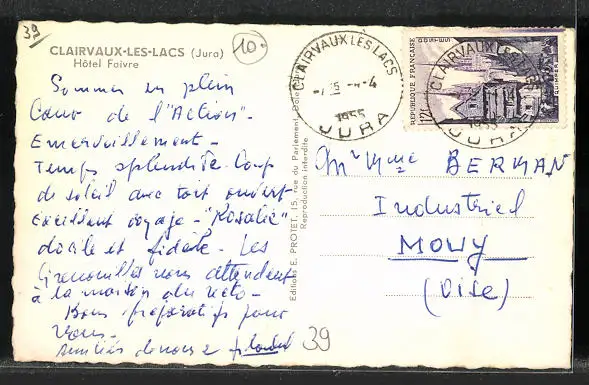 39
CLAIRVAUX-LES-LACS (Jura)
Hôtel Faivre
10
Sommes en plein
Cœur de l'"Action" -
Emerveillement -
Temps splendide. Coup
de soleil avec toit ouvert
excellent voyage - "Rosalie"
docile et fidèle - Les
Grenouilles nous attendent
à la maison du recto -
Bons préparatifs pour
vous -
amitiés de nous 2
Editions E. PROTET, 15, rue du Parlement, Dole
Reproduction interdite
CLAIRVAUX LES LACS
4-4
1955
JURA
REPUBLIQUE FRANÇAISE
POSTES
12F
CLAIRVAUX LES LACS
1955
JURA
Mr Mme BERMAN
Industriel
MOUY
(Oise)
39